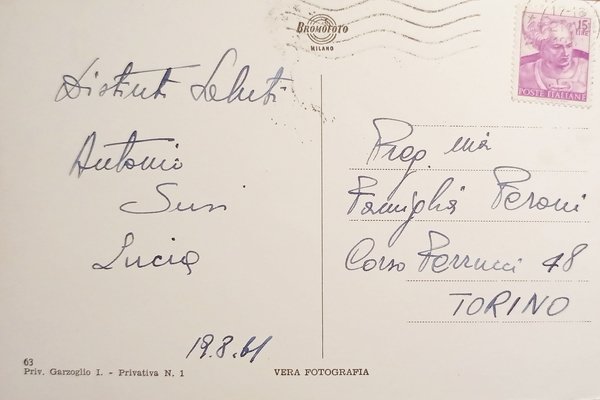 BROMOFOTO
MILANO
15
LIRE
POSTE ITALIANE
Distinti Saluti
Antonio
Susi
Lucia
19.8.61
Preg. mia
Famiglia Peroni
Corso Ferrucci 48
TORINO
63
Priv. Garzoglio I. - Privativa N. 1
VERA FOTOGRAFIA